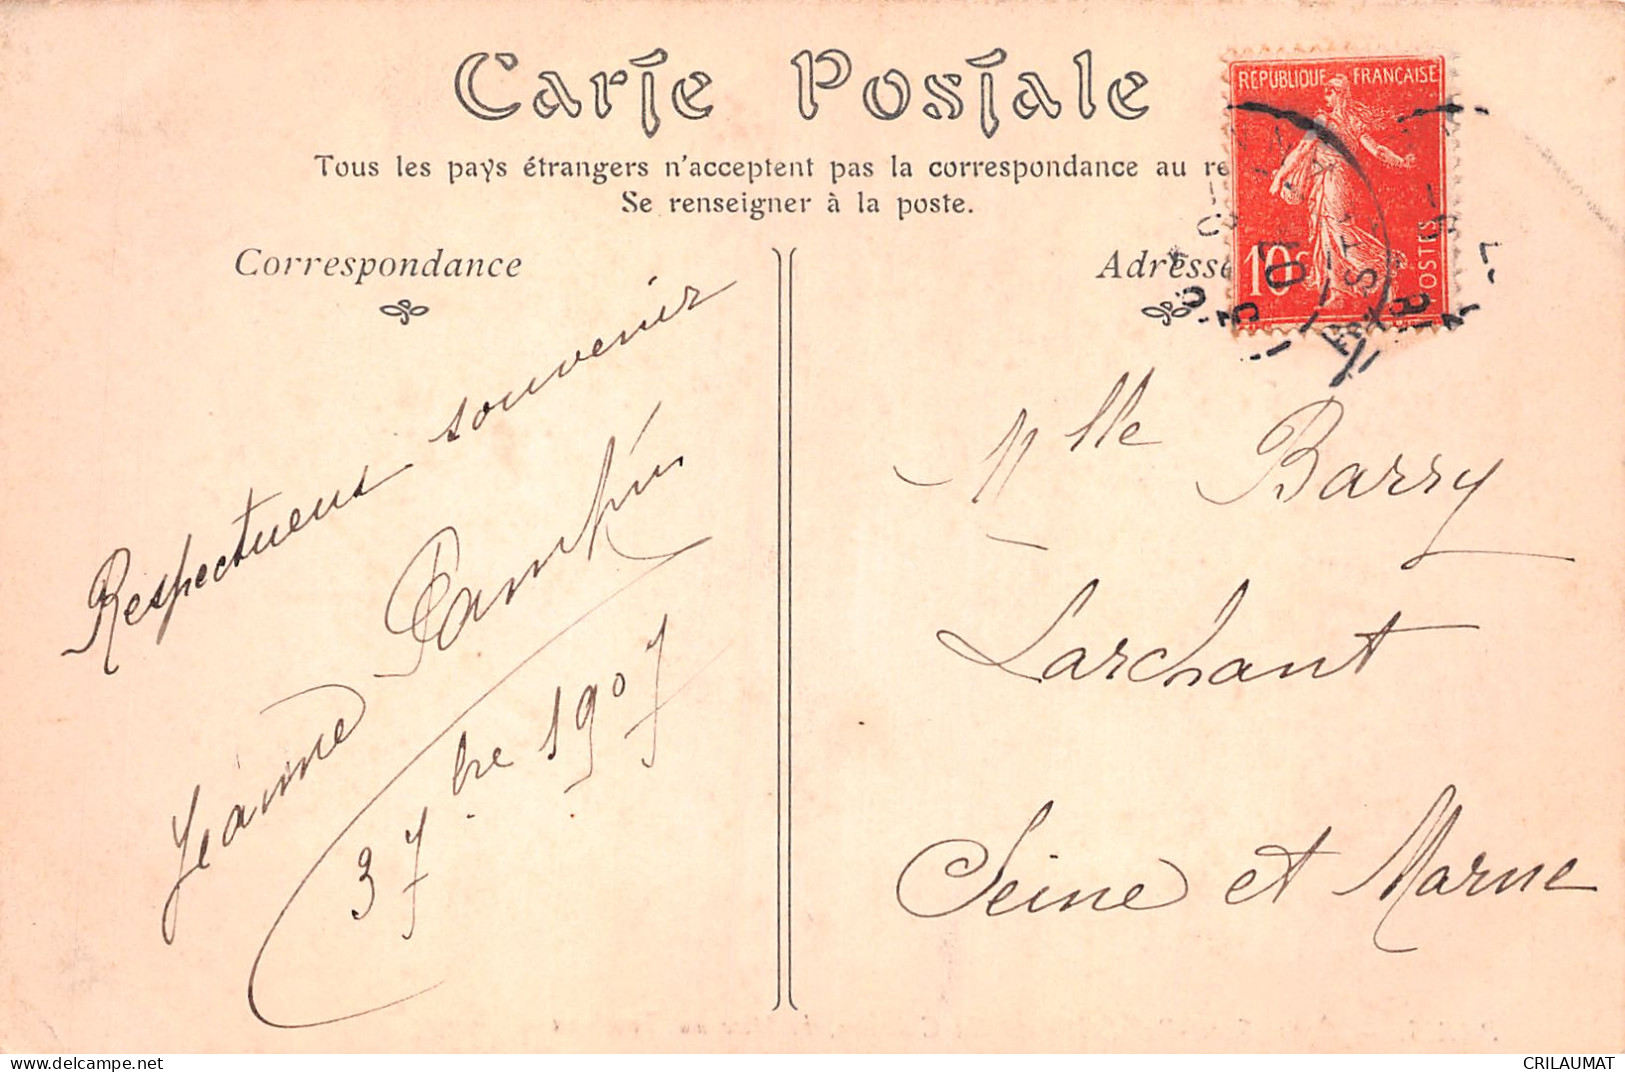 Carte Postale
Tous les pays étrangers n'acceptent pas la correspondance au re
Se renseigner à la poste.
Correspondance
Adresse
RÉPUBLIQUE FRANÇAISE
10c
POSTES
Respectueux souvenir
Jeanne
3 7bre 1907
Mlle Barry
Larchant
Seine et Marne
delcampe.net
CRILAUMAT